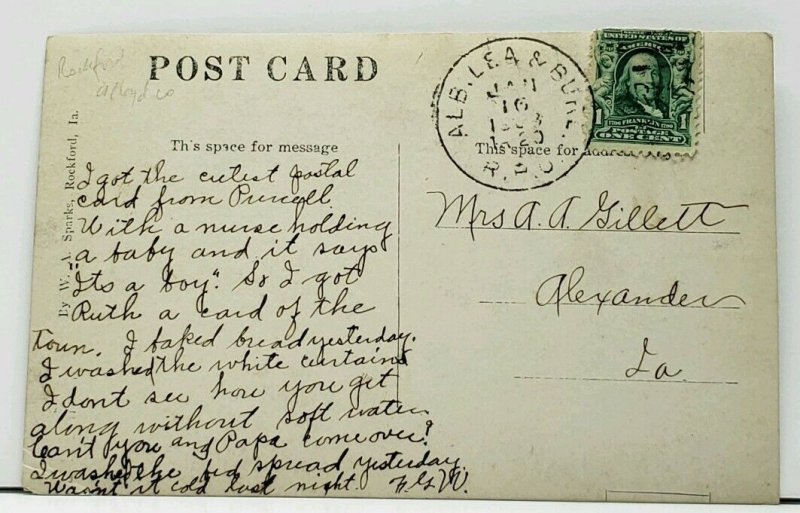 Rockford
Floyd co
POST CARD
By W. A. Sparks, Rockford, Ia.
This space for message
This space for address
ALB. LEA & BURL.
JAN
16
R.P.O.
UNITED STATES OF
AMERICA
1 FRANKLIN 1
POSTAGE
ONE CENT
I got the cutest postal
card from Purcell.
With a nurse holding
a baby and it says
"Its a boy". So I got
Ruth a card of the
town. I baked bread yesterday.
I washed the white curtains
I dont see how you get
along without soft water
Can't you and Papa come over?
I washed the bed spread yesterday.
Wasn't it cold last night. F.G.W.
Mrs A. A. Gillett
Alexander
Ia.